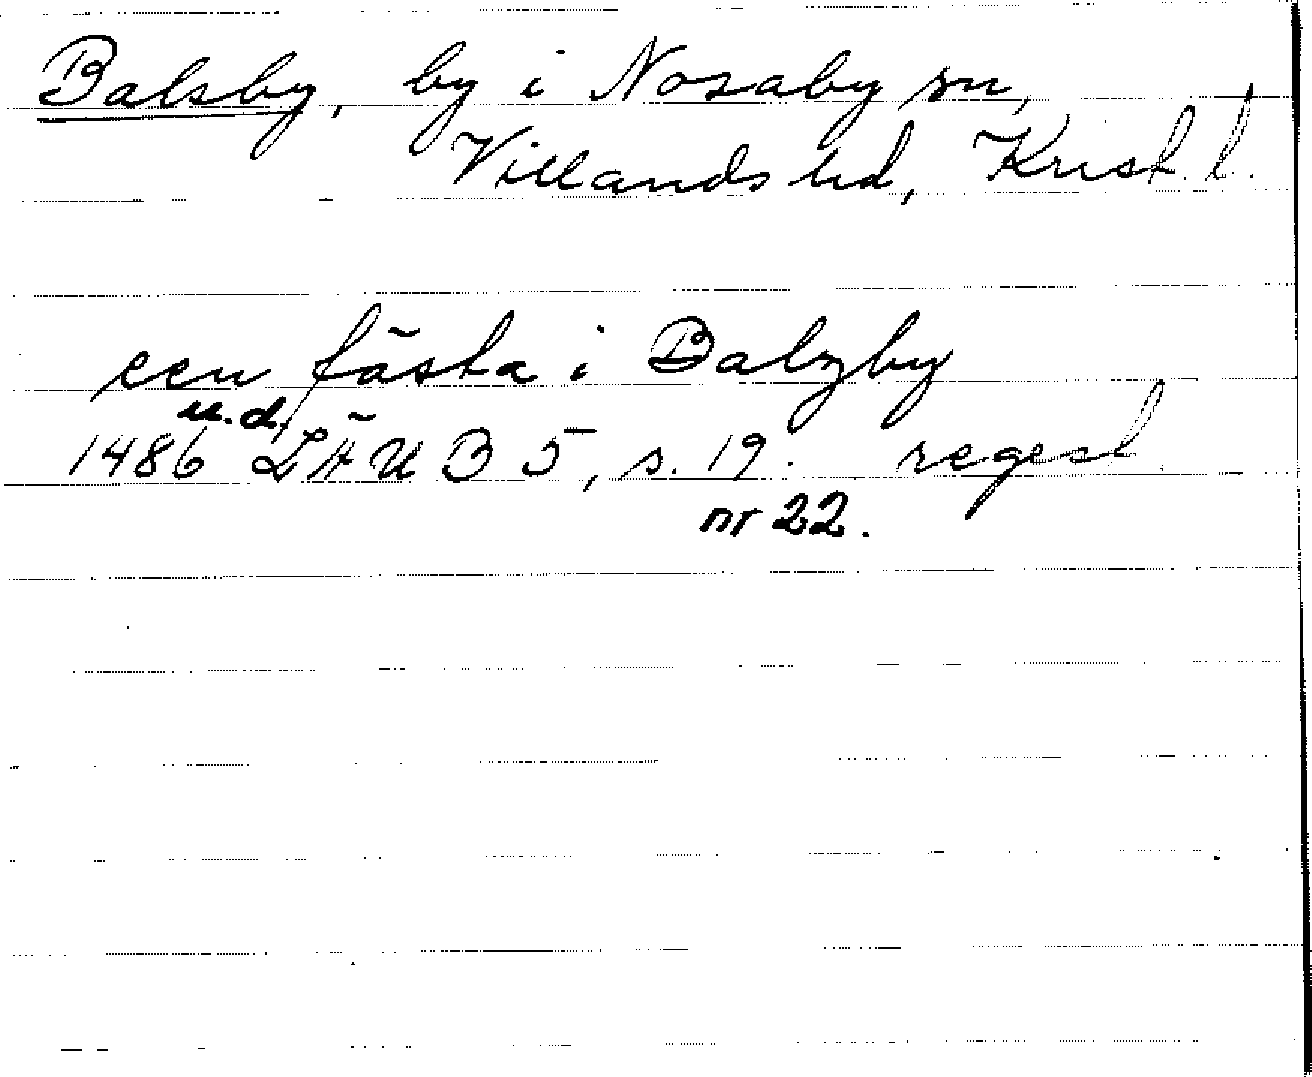 Balsby, by i Nosaby sn,
Villands hd, Krist. l.
een fästa i Balzby
u.d.
1486 LÄUB 5, s. 19. regest
nr 22.